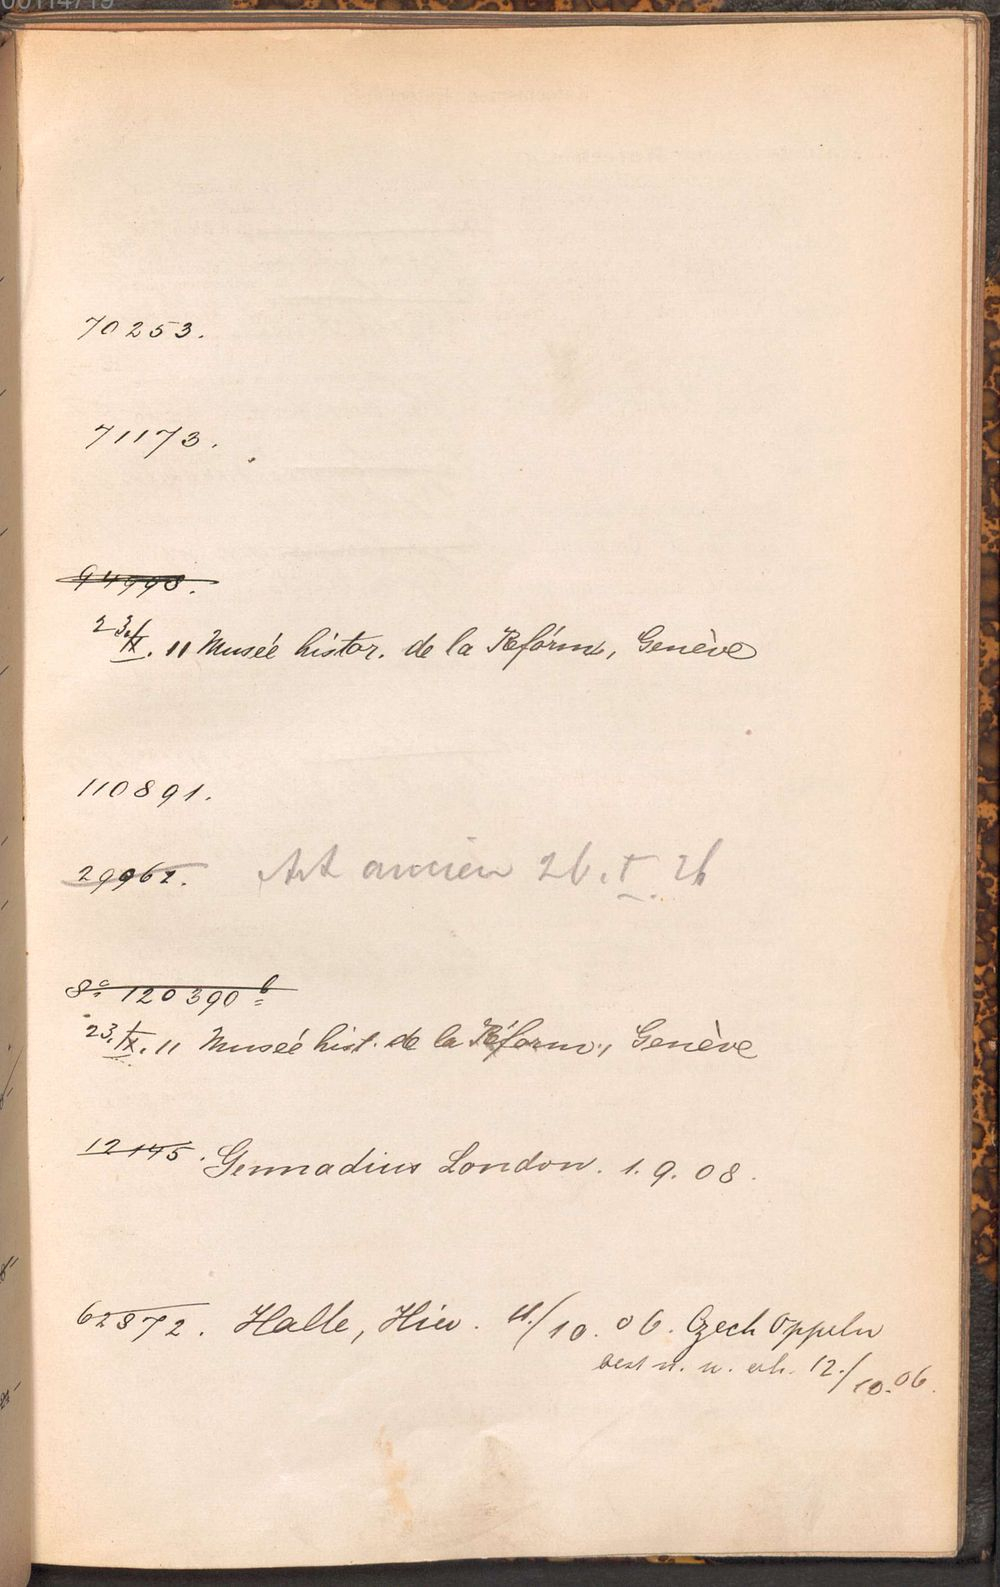 70253.
71173.
94998.
23./IX. 11 Musée histor. de la Réforme, Genève
110891.
29962. Art ancien 26. V. 26
8° 120390 b
23./IX. 11 Musée hist. de la Réform., Genève
12145. Gennadius London. 1. 9. 08.
62872. Halle, Hier. 11./10. 06. Czech Oppeln
best n. n. erh. 12./10. 06.